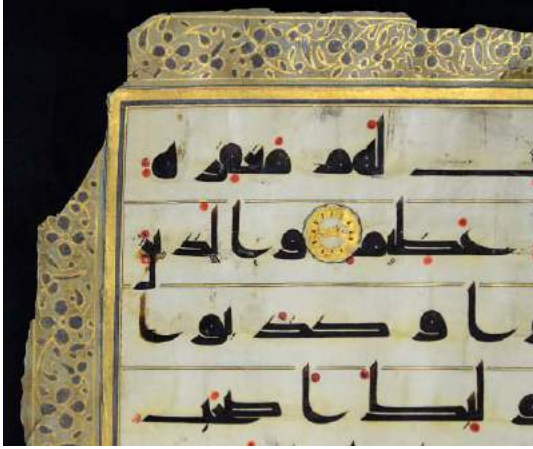 لهم مغفرة
عظيم والذين
وا وكذبوا
ولئك اصحب